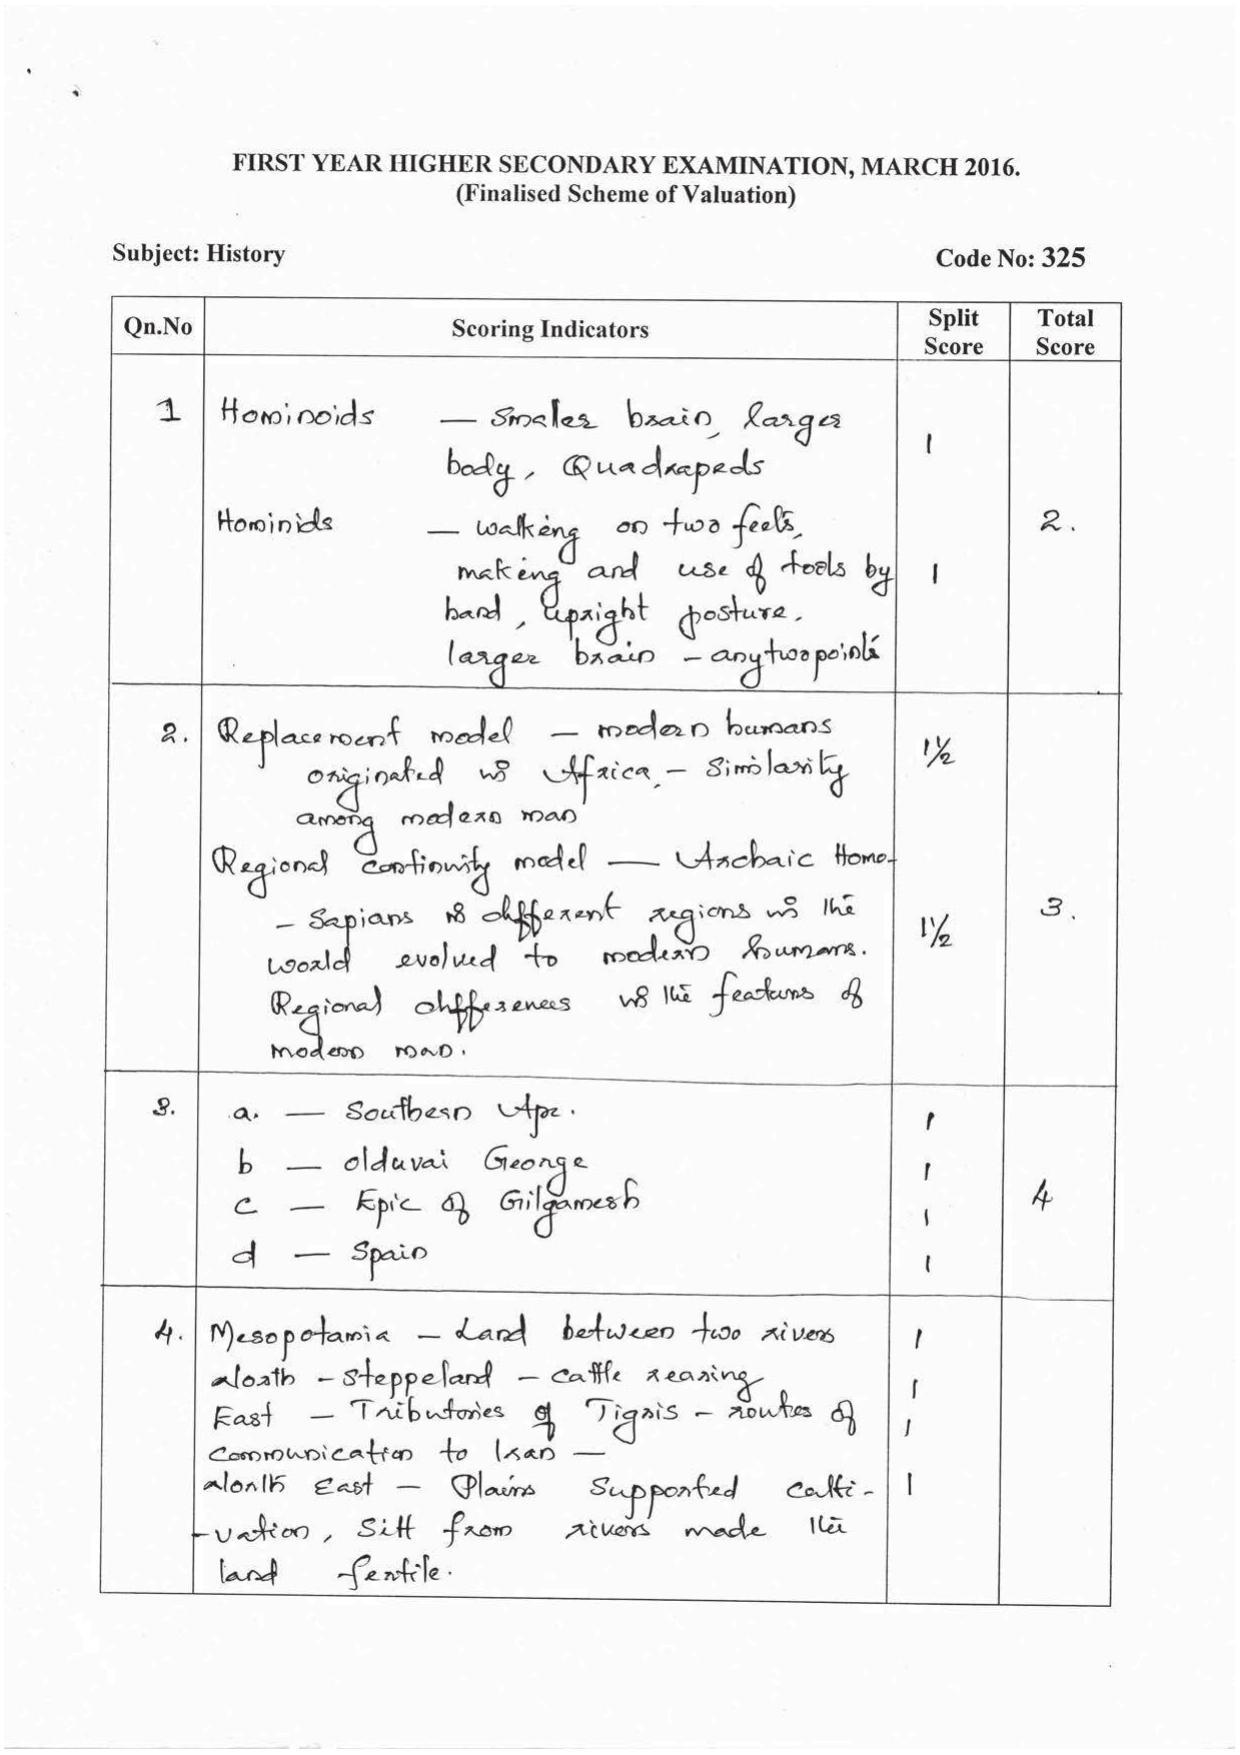 FIRST YEAR HIGHER SECONDARY EXAMINATION, MARCH 2016.
(Finalised Scheme of Valuation)
Subject: History
Code No: 325
Qn.No Scoring Indicators Split Score Total Score
1 Hominoids — Smaler brain, larger
body, Quadrapeds 1
Hominids — walking on two feets, 2.
making and use of tools by 1
hand, upright posture,
larger brain – any two points
2. Replacement model — modern humans 1½
originated in Africa, – Similarity
among modern man
Regional continuity model — Archaic Homo-
– Sapians in different regions in the 1½ 3.
world evolved to modern humans.
Regional differences in the features of
modern man.
3. a. — Southern Ape. 1
b — olduvai George 1
c — Epic of Gilgamesh 1 4
d — Spain 1
4. Mesopotamia – Land between two rivers 1
North – Steppeland – cattle rearing 1
East – Tributories of Tigris – routes of 1
communication to Iran —
North East – Plains Supported culti- 1
-vation, Silt from rivers made the
land fertile.